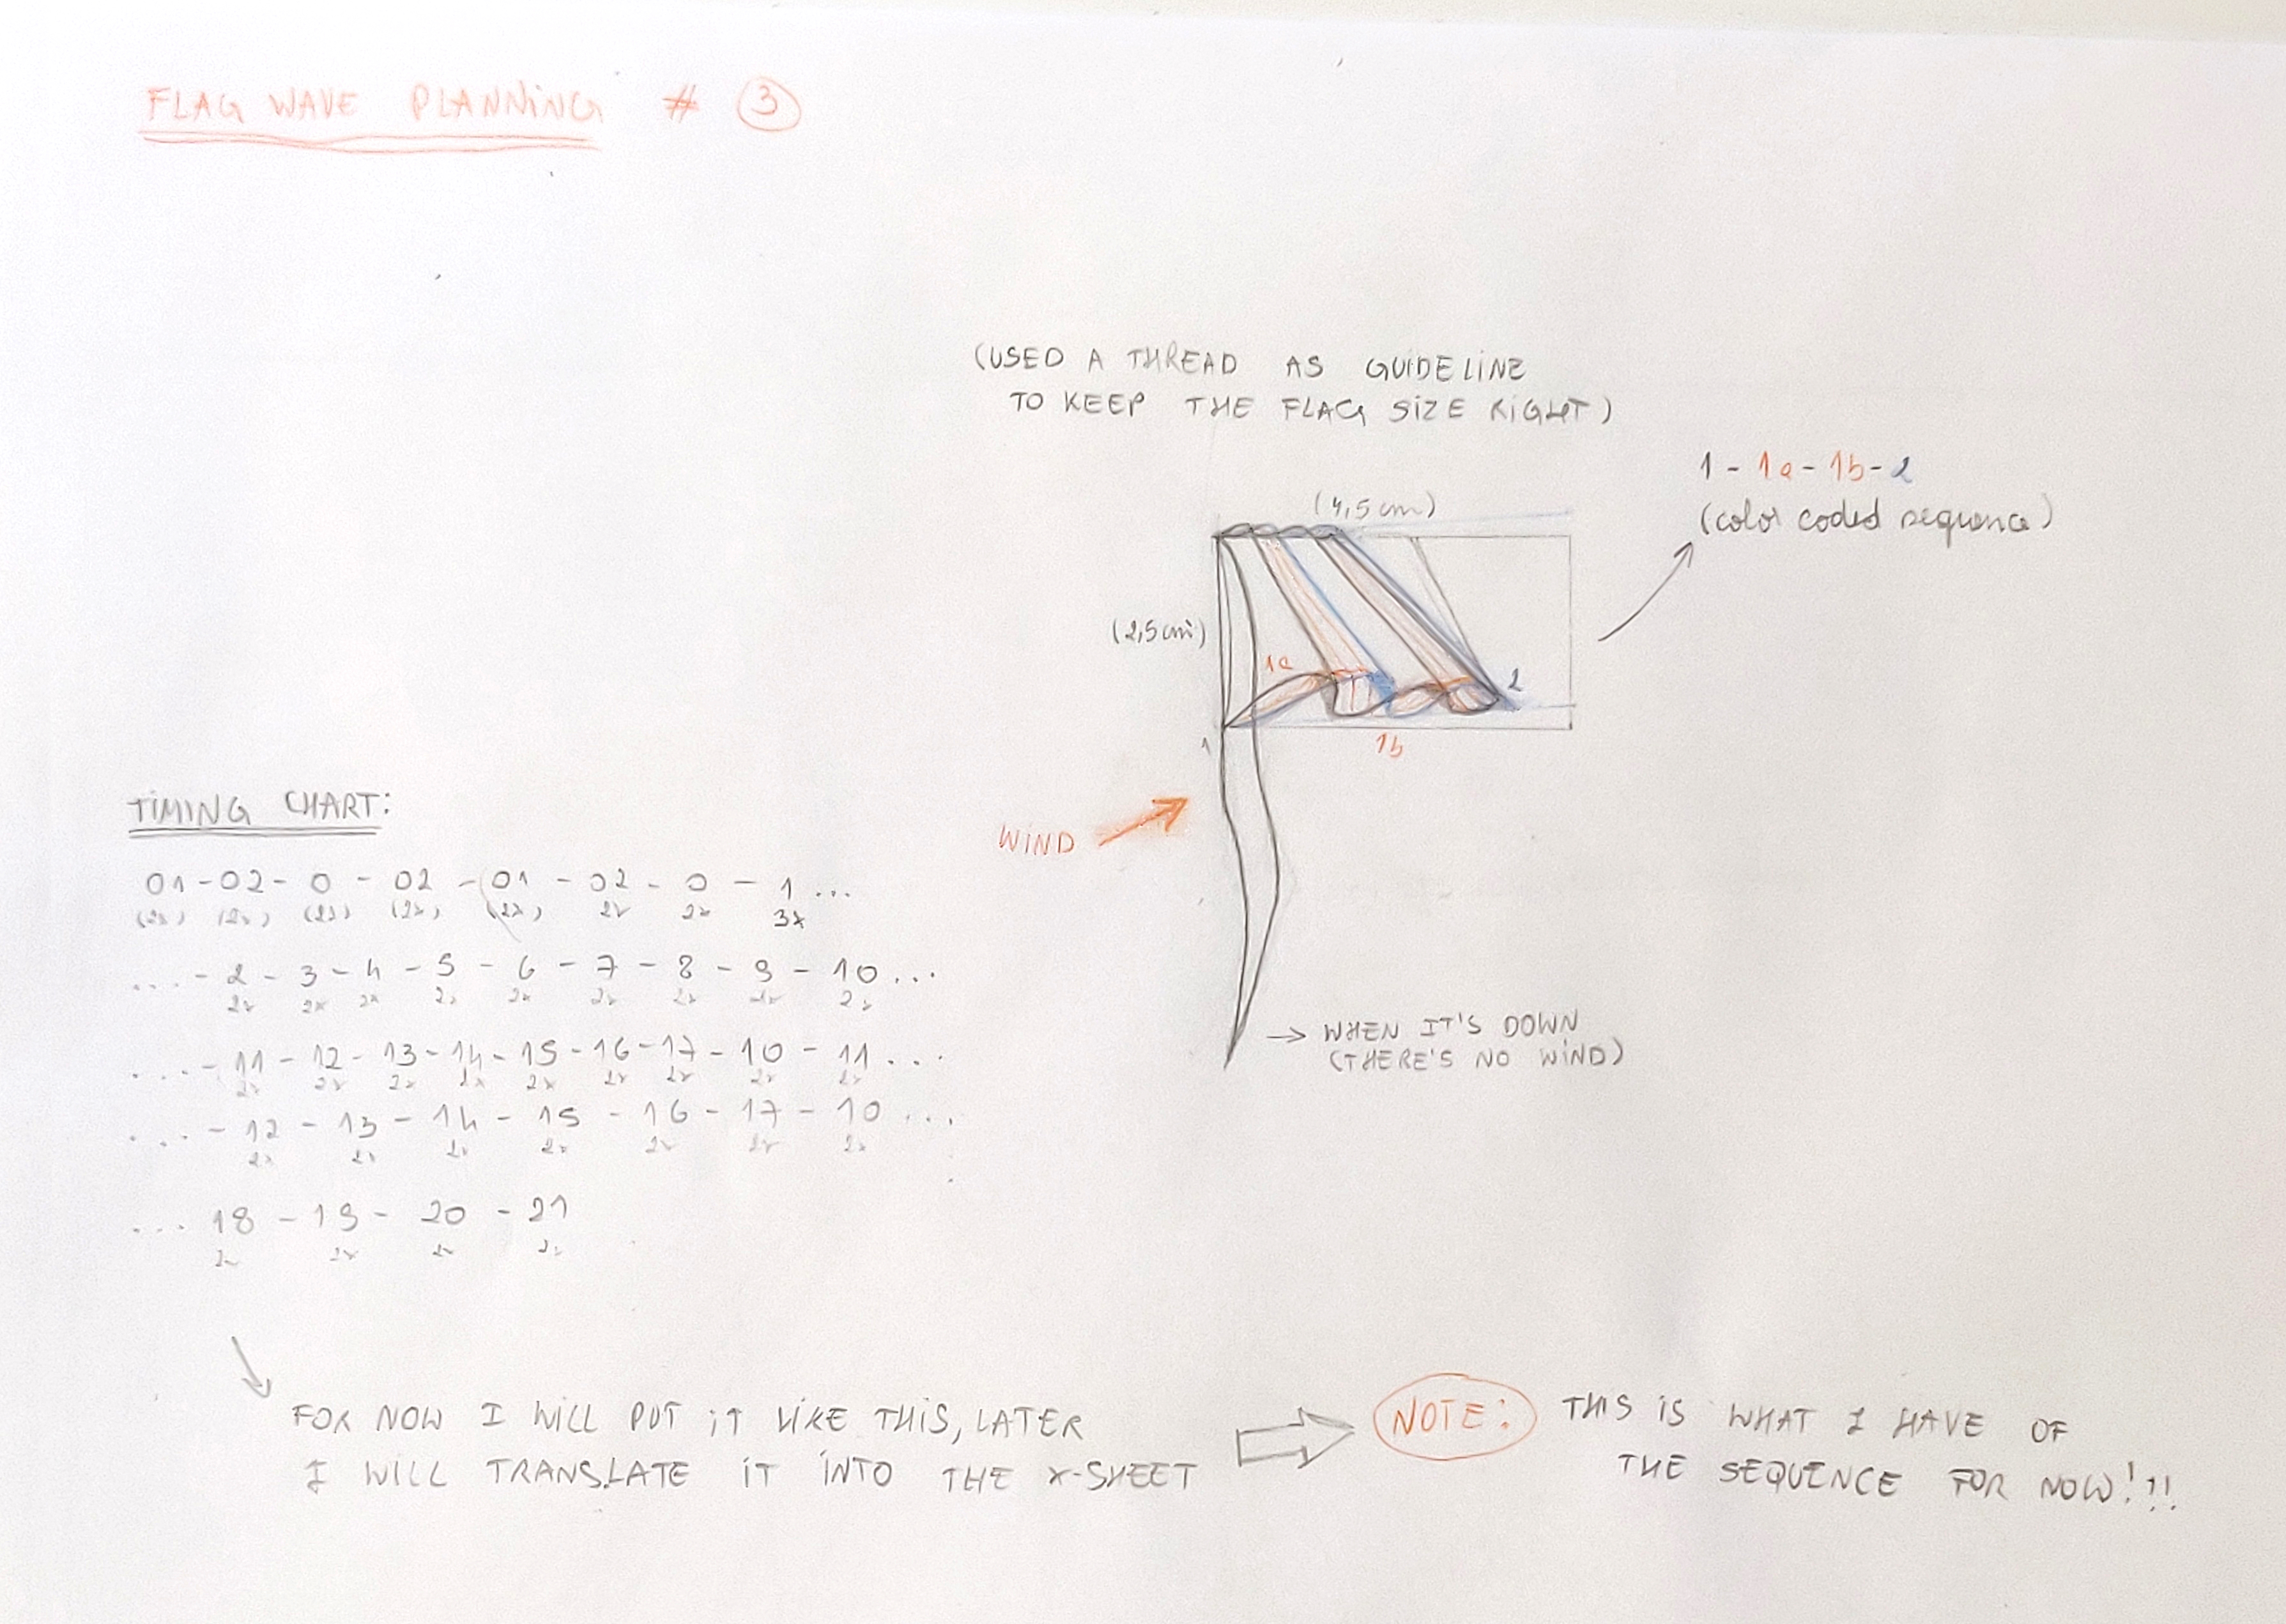 FLAG WAVE PLANNING # 3
(USED A THREAD AS GUIDELINE
TO KEEP THE FLAG SIZE RIGHT)
1 - 1a - 1b - 2
(color coded sequence)
(4,5 cm)
(2,5 cm)
1a
2
1
1b
WIND
→ WHEN IT'S DOWN
(THERE'S NO WIND)
TIMING CHART:
01 - 02 - 0 - 02 - 01 - 02 - 0 - 1 ...
(2x) (2x) (2x) (2x) (2x) 2x 2x 3x
... - 2 - 3 - 4 - 5 - 6 - 7 - 8 - 9 - 10 ...
2x 2x 2x 2x 2x 2x 2x 2x 2x
... - 11 - 12 - 13 - 14 - 15 - 16 - 17 - 10 - 11 ...
2x 2x 2x 2x 2x 2x 2x 2x 2x
... - 12 - 13 - 14 - 15 - 16 - 17 - 10 ...
2x 2x 2x 2x 2x 2x 2x
... 18 - 19 - 20 - 21
2x 2x 2x 2x
FOR NOW I WILL PUT IT LIKE THIS, LATER
I WILL TRANSLATE IT INTO THE X-SHEET
NOTE: THIS IS WHAT I HAVE OF
THE SEQUENCE FOR NOW!!!